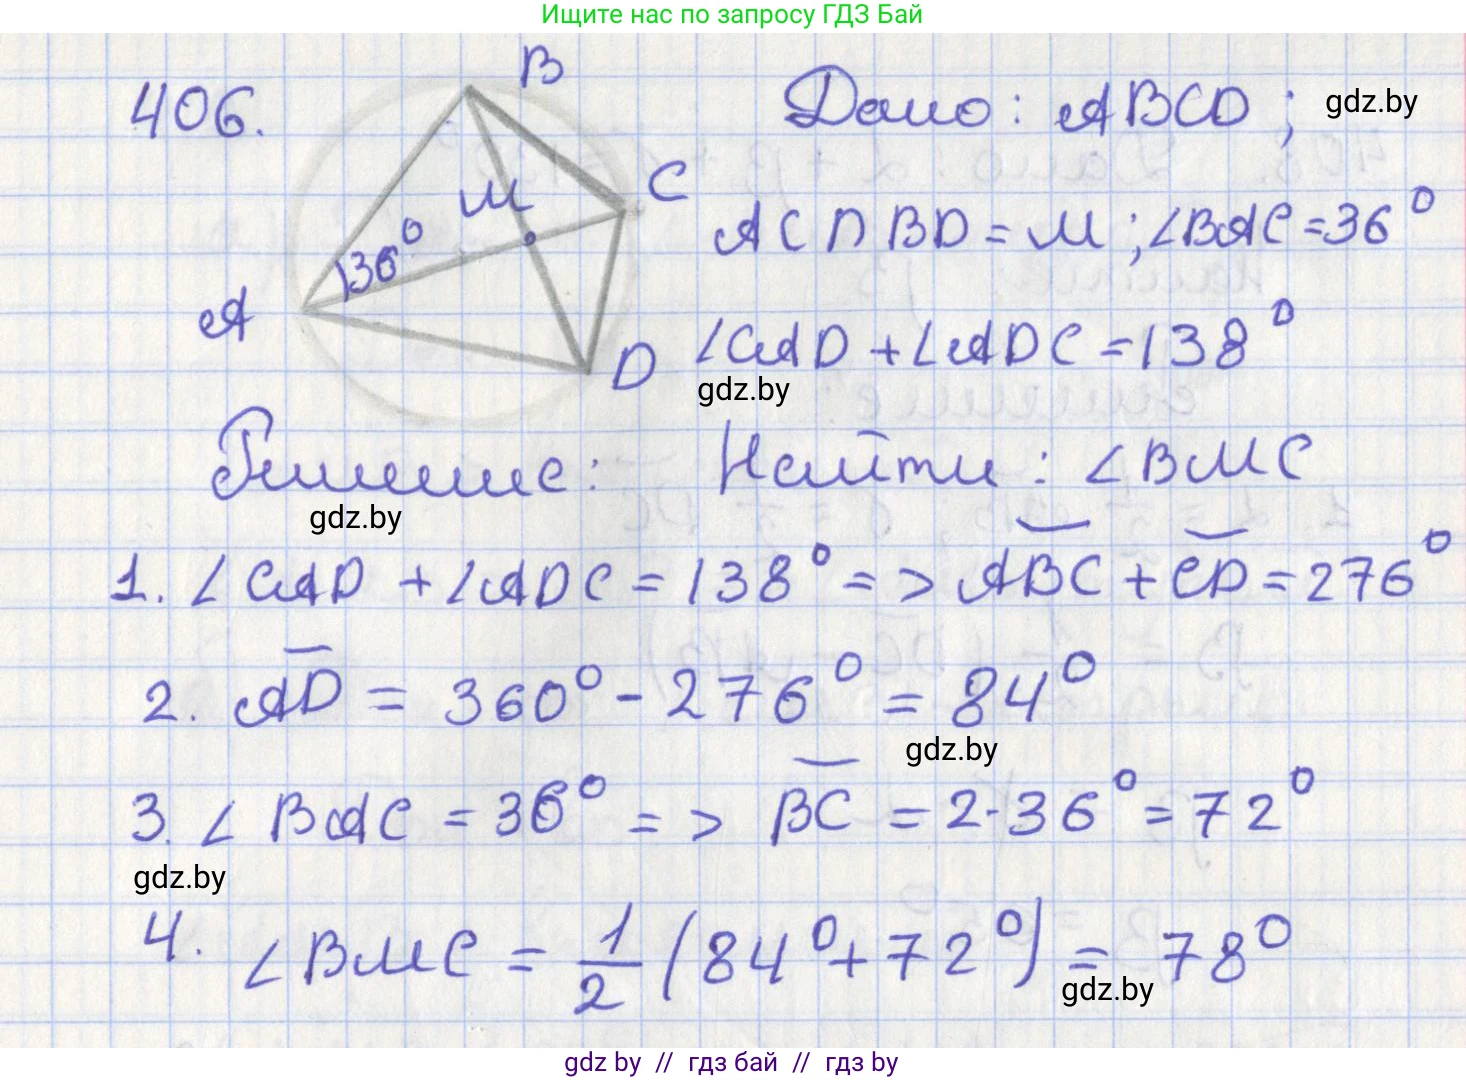 Ищите нас по запросу ГДЗ Бай
406.
B
Дано: ABCD;
gdz.by
M
C
AC ∩ BD = M; ∠BAC = 36°
36°
A
D
∠CAD + ∠ADC = 138°
gdz.by
Решение:
Найти: ∠BMC
gdz.by
1. ∠CAD + ∠ADC = 138° => ABC + CD = 276°
2. AD = 360° - 276° = 84°
gdz.by
3. ∠BAC = 36° => BC = 2·36° = 72°
gdz.by
4. ∠BMC = 1/2 (84° + 72°) = 78°
gdz.by
gdz by // гдз бай // гдз by